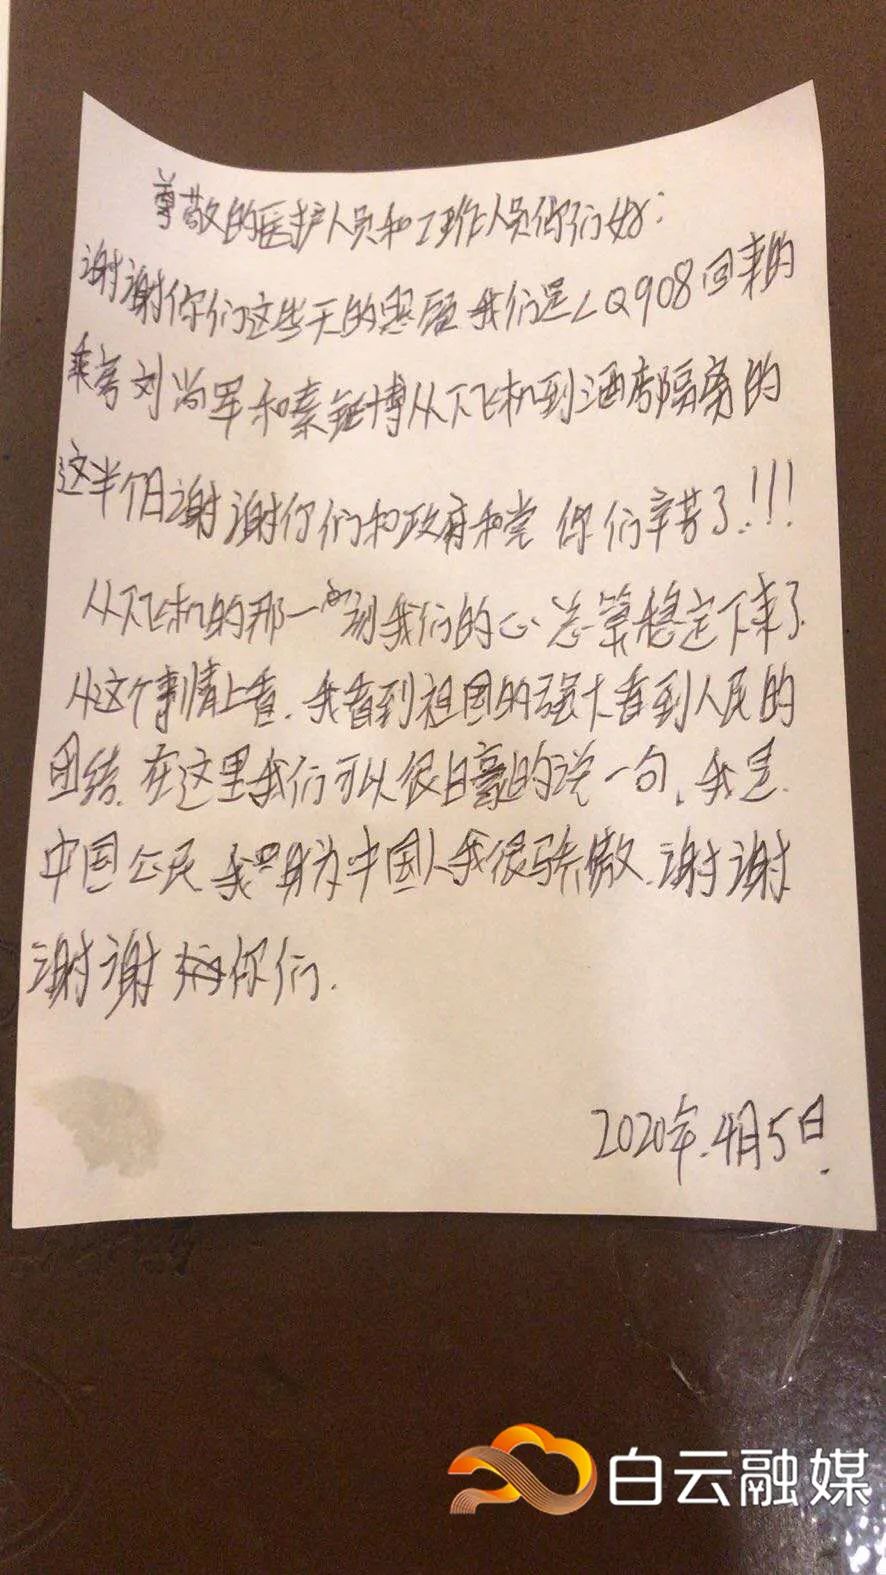 尊敬的医护人员和工作人员你们好:
谢谢你们这些天的照顾 我们是LQ908回来的
乘客刘尚军和秦銍博从下飞机到酒店隔离的
这半个月谢谢你们和政府和党 你们辛苦了!!!
从下飞机的那一刻我们的心总算稳定下来了
从这个事情上看.我看到祖国的强大看到人民的
团结.在这里我们可以很自豪的说一句.我是.
中国公民 我身为中国人我很骄傲.谢谢
谢谢你们.
2020年.4月5日.
白云融媒